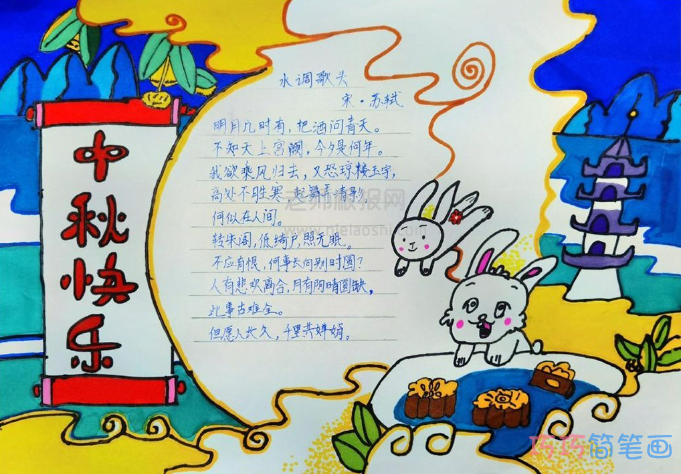 中秋快乐
水调歌头
宋·苏轼
明月几时有，把酒问青天。
不知天上宫阙，今夕是何年。
我欲乘风归去，又恐琼楼玉宇，
高处不胜寒 起舞弄清影，
何似在人间。
转朱阁，低绮户，照无眠。
不应有恨，何事长向别时圆？
人有悲欢离合，月有阴晴圆缺，
此事古难全。
但愿人长久，千里共婵娟。
老师板报网
巧巧简笔画